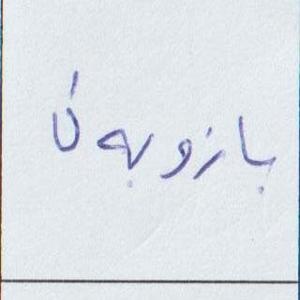 بازوبه‌ن